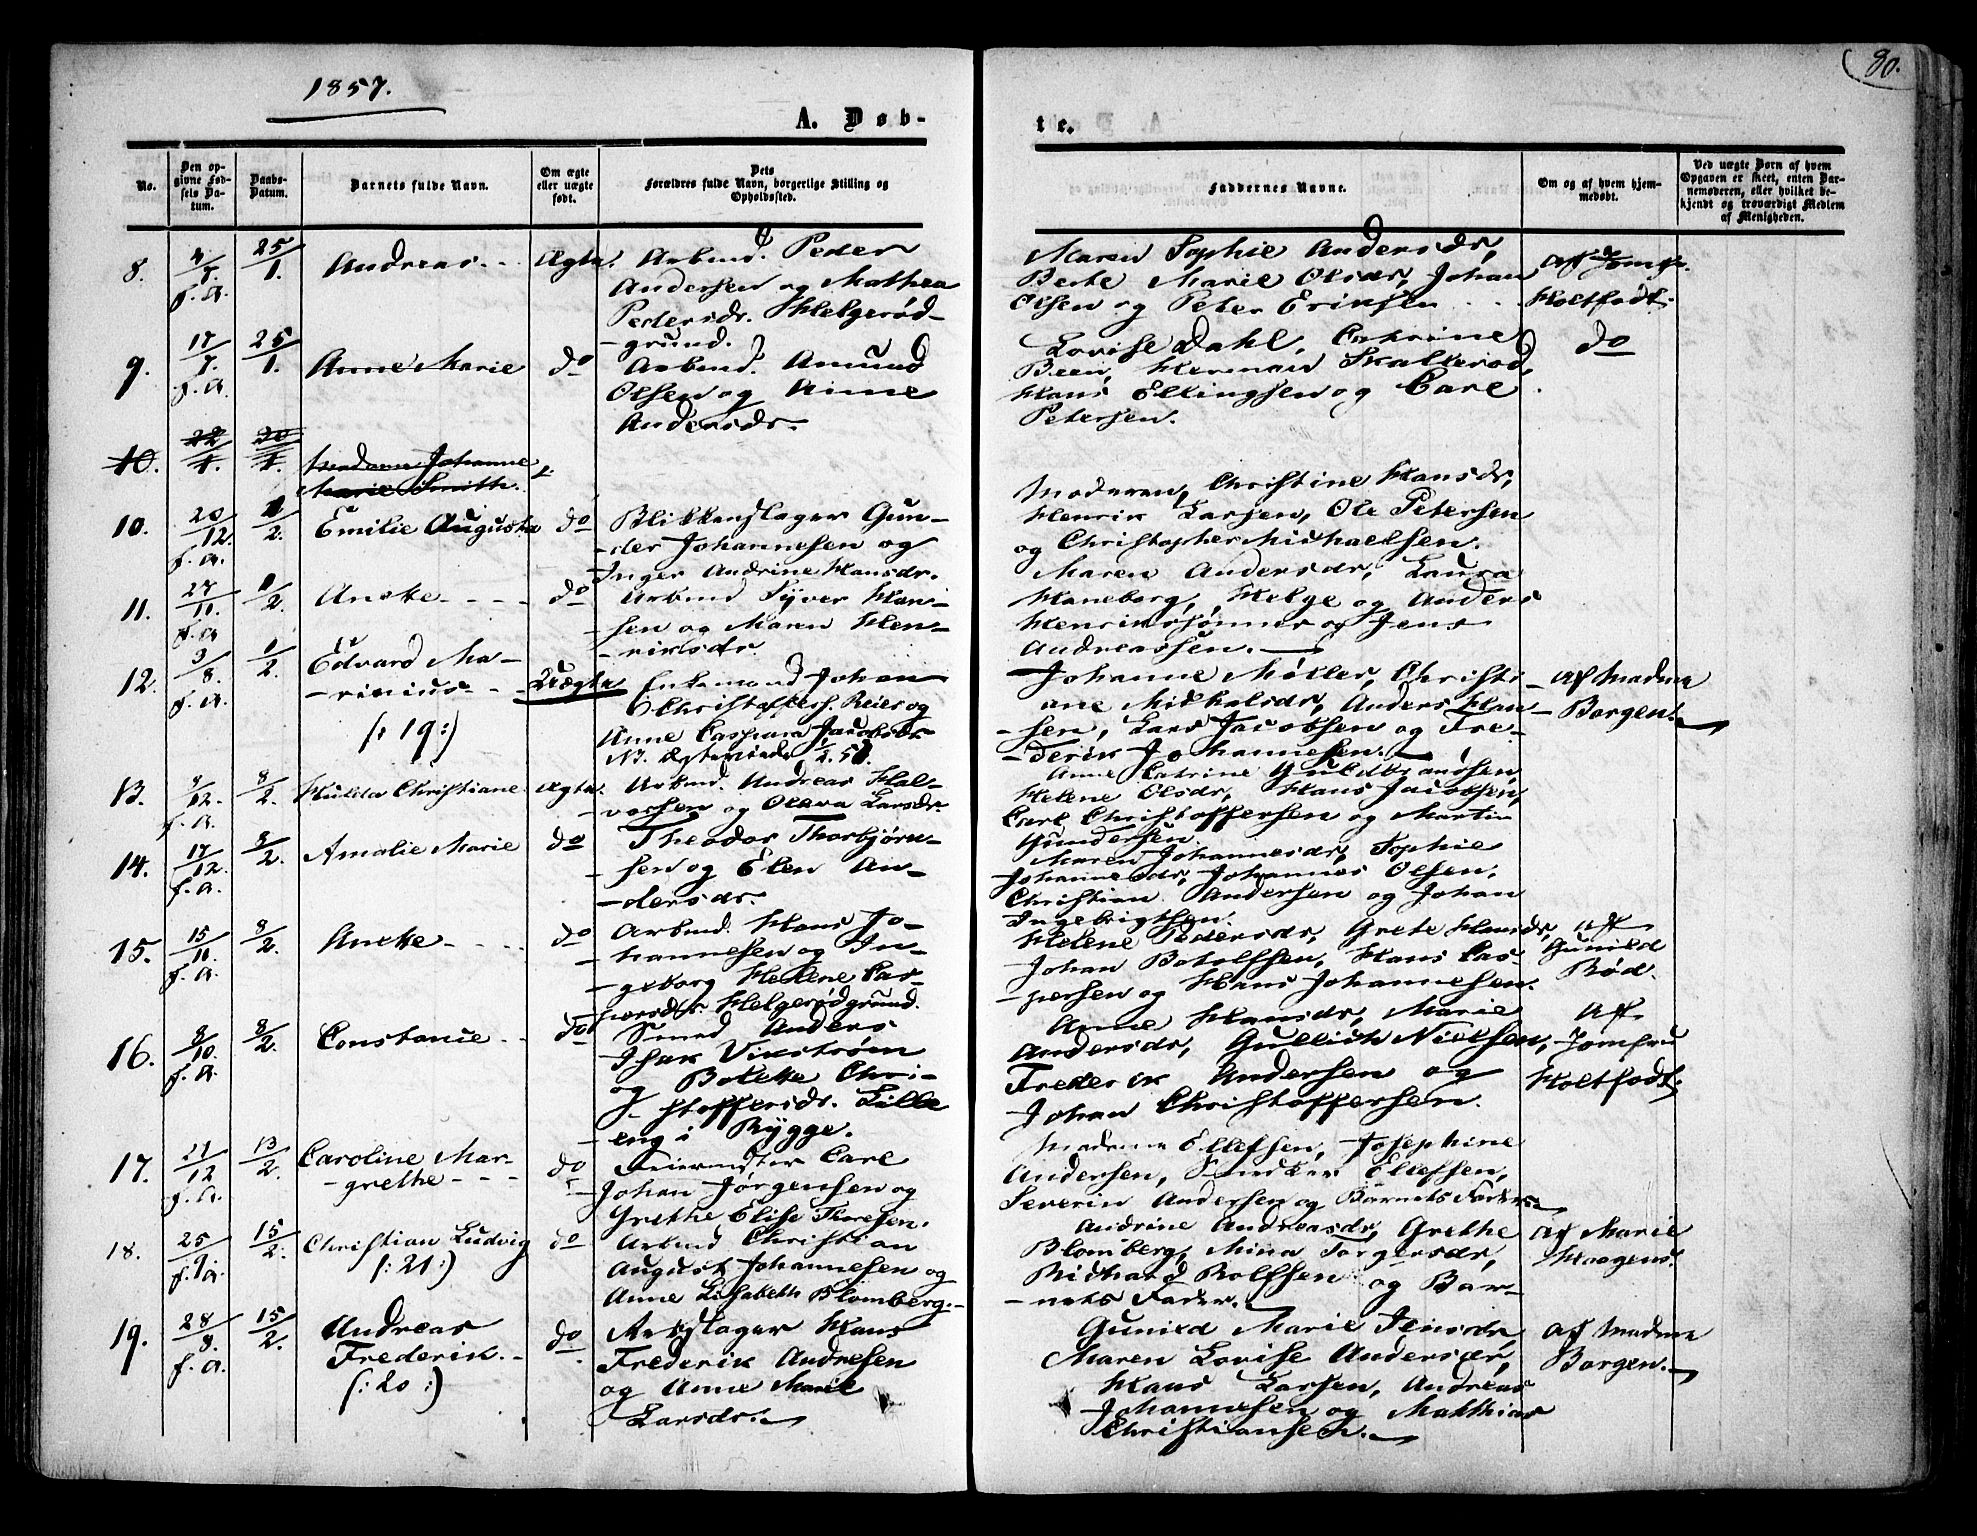 1857.
80.
A. Døb-
te.
No.
Den opgivne Fødsels Datum.
Daabs-Datum.
Barnets fulde Navn.
Om ægte eller uægte født.
Dets Forældres fulde Navn, borgerlige Stilling og Opholdssted.
Faddernes Navne.
Om og af hvem hjemmedøbt.
Ved uægte Børn af hvem Opgaven er skeet, enten Barnemoderen, eller hvilket bekjendt og troværdigt Medlem af Menigheden.
8. 4/7 f.A. 25/1. Andreas. Ægte. Arbmd. Peder
Andersen og Mathea
Pedersdr. Helgerød-
grund.
Maren Sophie Andersdr,
Berte Marie Olsdr, Johan
Olsen og Peter Eriksen
Af Jomfr.
Holtfodt.
9. 17/7. f.A. 25/1. Anne Marie do Arbmd. Amund
Olsen og Anne
Andersdr.
Lovise Dahl, Cathrine
Been, Herman Skallerød,
Hans Ellingsen og Carl
Petersen.
do
10. 22/1. 30/1. Madame Johanne
Marie Smith.
10. 20/12. f.A. 1/2. Emilie Augusta do Blikkenslager Gun-
der Johannesen og
Inger Andrine Hansdr.
Moderen, Christine Hansdr,
Henrik Larsen, Ole Petersen
og Christopher Michaelsen.
11. 27/11. f.A. 1/2. Anette do Arbmd Syver Han-
sen og Maren Hen-
riksdr.
Maren Andersdr, Laura
Haneborg, Helge og Anders
Henrikssønner og Jens
Andreassen.
12. 3/8. f.A. 1/2. Edvard Ma-
rinius
(: 19 :)
Uægte Enkemand Johan
Christoffers. Reier og
Anne Caspara Jacobsdr
Johanne Møller, Christi-
ane Mikkelsdr, Anders Han-
sen, Lars Jacobsen og Fre-
derik Johannesen.
Af Madme
Borgen.
13. 4/12. f.A. 8/2. Hulda Christiane Ægte. Arbmd. Andreas Hal-
vorsen og Olava Larsdr.
Anne Catrine Guldbrandsen,
Helene Olsdr, Hans Jacobsen,
Carl Christoffersen og Martin
Gundersen.
14. 17/12. f.A. 8/2. Amalie Marie do Theodor Thorbjørn-
sen og Elen An-
dersdr.
Maren Johannesdr, Sophie
Johannesdr, Johannes Olsen,
Christian Andersen og Johan
Ingebrigtsen.
15. 15/11. f.A. 8/2. Anette do Arbmd. Hans Jo-
hannesen og In-
geborg Helene Cas-
persdr. Helgerødgrund.
Helene Pedersdr, Grete Hansdr,
Johan Botolfsen, Hans Cas-
persen og Hans Johannesen.
Af
Gunild
Rød.
16. 8/10. f.A. 8/2. Constance do Smed Anders
Isak Vikstrøm
og Bolette Chri-
stoffersdr. Lille
eng i Rygge.
Anne Hansdr, Marie
Andersdr, Gullich Nielsen,
Frederik Andersen og
Johan Christoffersen.
Af
Jomfru
Holtfodt.
17. 27/12 f.A. 13/2. Caroline Mar-
grethe
do Feiermester Carl
Johan Jørgensen og
Grethe Elise Thoresen.
Madame Ellefsen, Josephine
Andersen, Snedker Ellefsen,
Severin Andersen og Barnets Fader.
18. 25/9. f.A. 15/2. Christian Ludvig
(: 21 :)
do Arbmd Christian
August Johannesen og
Anne Elisabeth Blomberg.
Andrine Andreasdr, Grethe
Blomberg, Mina Torgersdr,
Richard Rolfsen og Bar-
nets Fader.
Af Marie
Haagens.
19. 28/8. f.A. 15/2. Andreas
Frederik.
(: 20 :)
do Hans
Frederik Andresen
og Anne Marie
Larsdr.
Gunild Marie Jensdr,
Maren Lovise Andersdr,
Hans Larsen, Andreas
Johannesen og Matthias
Christiansen.
Af Madme
Borgen.